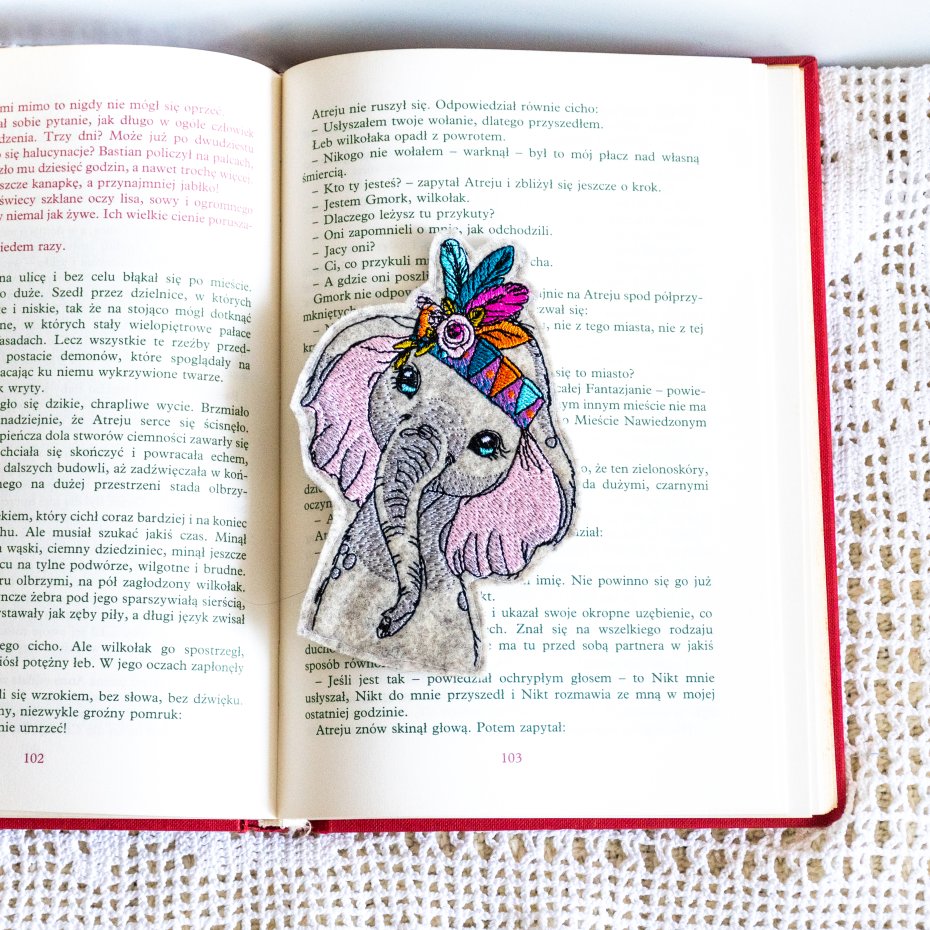 mi mimo to nigdy nie mógł się oprzeć
ał sobie pytanie, jak długo w ogóle człowiek
dzenia. Trzy dni? Może już po dwudziestu
o się halucynacje? Bastian policzył na palcach,
zło mu dziesięć godzin, a nawet trochę więcej.
szcze kanapkę, a przynajmniej jabłko!
świecy szklane oczy lisa, sowy i ogromnego
y niemal jak żywe. Ich wielkie cienie porusza-
iedem razy.
na ulicę i bez celu błąkał się po mieście.
o duże. Szedł przez dzielnice, w których
e i niskie, tak że na stojąco mógł dotknąć
ne, w których stały wielopiętrowe pałace
asadach. Lecz wszystkie te rzeźby przed-
postacie demonów, które spoglądały na
acając ku niemu wykrzywione twarze.
k wryty.
gło się dzikie, chrapliwe wycie. Brzmiało
nadziejnie, że Atreju serce się ścisnęło.
pieńcza dola stworów ciemności zawarły się
chciała się skończyć i powracała echem,
dalszych budowli, aż zadźwięczała w koń-
nego na dużej przestrzeni stada olbrzy-
ękiem, który cichł coraz bardziej i na koniec
chu. Ale musiał szukać jakiś czas. Minął
wąski, ciemny dziedziniec, minął jeszcze
cu na tylne podwórze, wilgotne i brudne.
ru olbrzymi, na pół zagłodzony wilkołak.
yncze żebra pod jego sparszywiałą sierścią,
ystawały jak zęby piły, a długi język zwisał
ego cicho. Ale wilkołak go spostrzegł,
iósł potężny łeb. W jego oczach zapłonęły
li się wzrokiem, bez słowa, bez dźwięku.
ny, niezwykle groźny pomruk:
nie umrzeć!
102
Atreju nie ruszył się. Odpowiedział równie cicho:
– Usłyszałem twoje wołanie, dlatego przyszedłem.
Łeb wilkołaka opadł z powrotem.
– Nikogo nie wołałem – warknął – był to mój płacz nad własną
śmiercią.
– Kto ty jesteś? – zapytał Atreju i zbliżył się jeszcze o krok.
– Jestem Gmork, wilkołak.
– Dlaczego leżysz tu przykuty?
– Oni zapomnieli o mnie, jak odchodzili.
– Jacy oni?
– Ci, co przykuli m cha.
– A gdzie oni poszli
Gmork nie odpow jnie na Atreju spod półprzy-
mkniętych zwał się:
nie z tego miasta, nie z tej
to miasto?
całej Fantazjanie – powie-
ym innym mieście nie ma
o Mieście Nawiedzonym
o, że ten zielonoskóry,
da dużymi, czarnymi
oczyn
– A
Atre ział:
imię. Nie powinno się go już
kt.
i ukazał swoje okropne uzębienie, co
ch. Znał się na wszelkiego rodzaju
ducho ma tu przed sobą partnera w jakiś
sposób równ
– Jeśli jest tak – powiedział ochrypłym głosem – to Nikt mnie
usłyszał, Nikt do mnie przyszedł i Nikt rozmawia ze mną w mojej
ostatniej godzinie.
Atreju znów skinął głową. Potem zapytał:
103